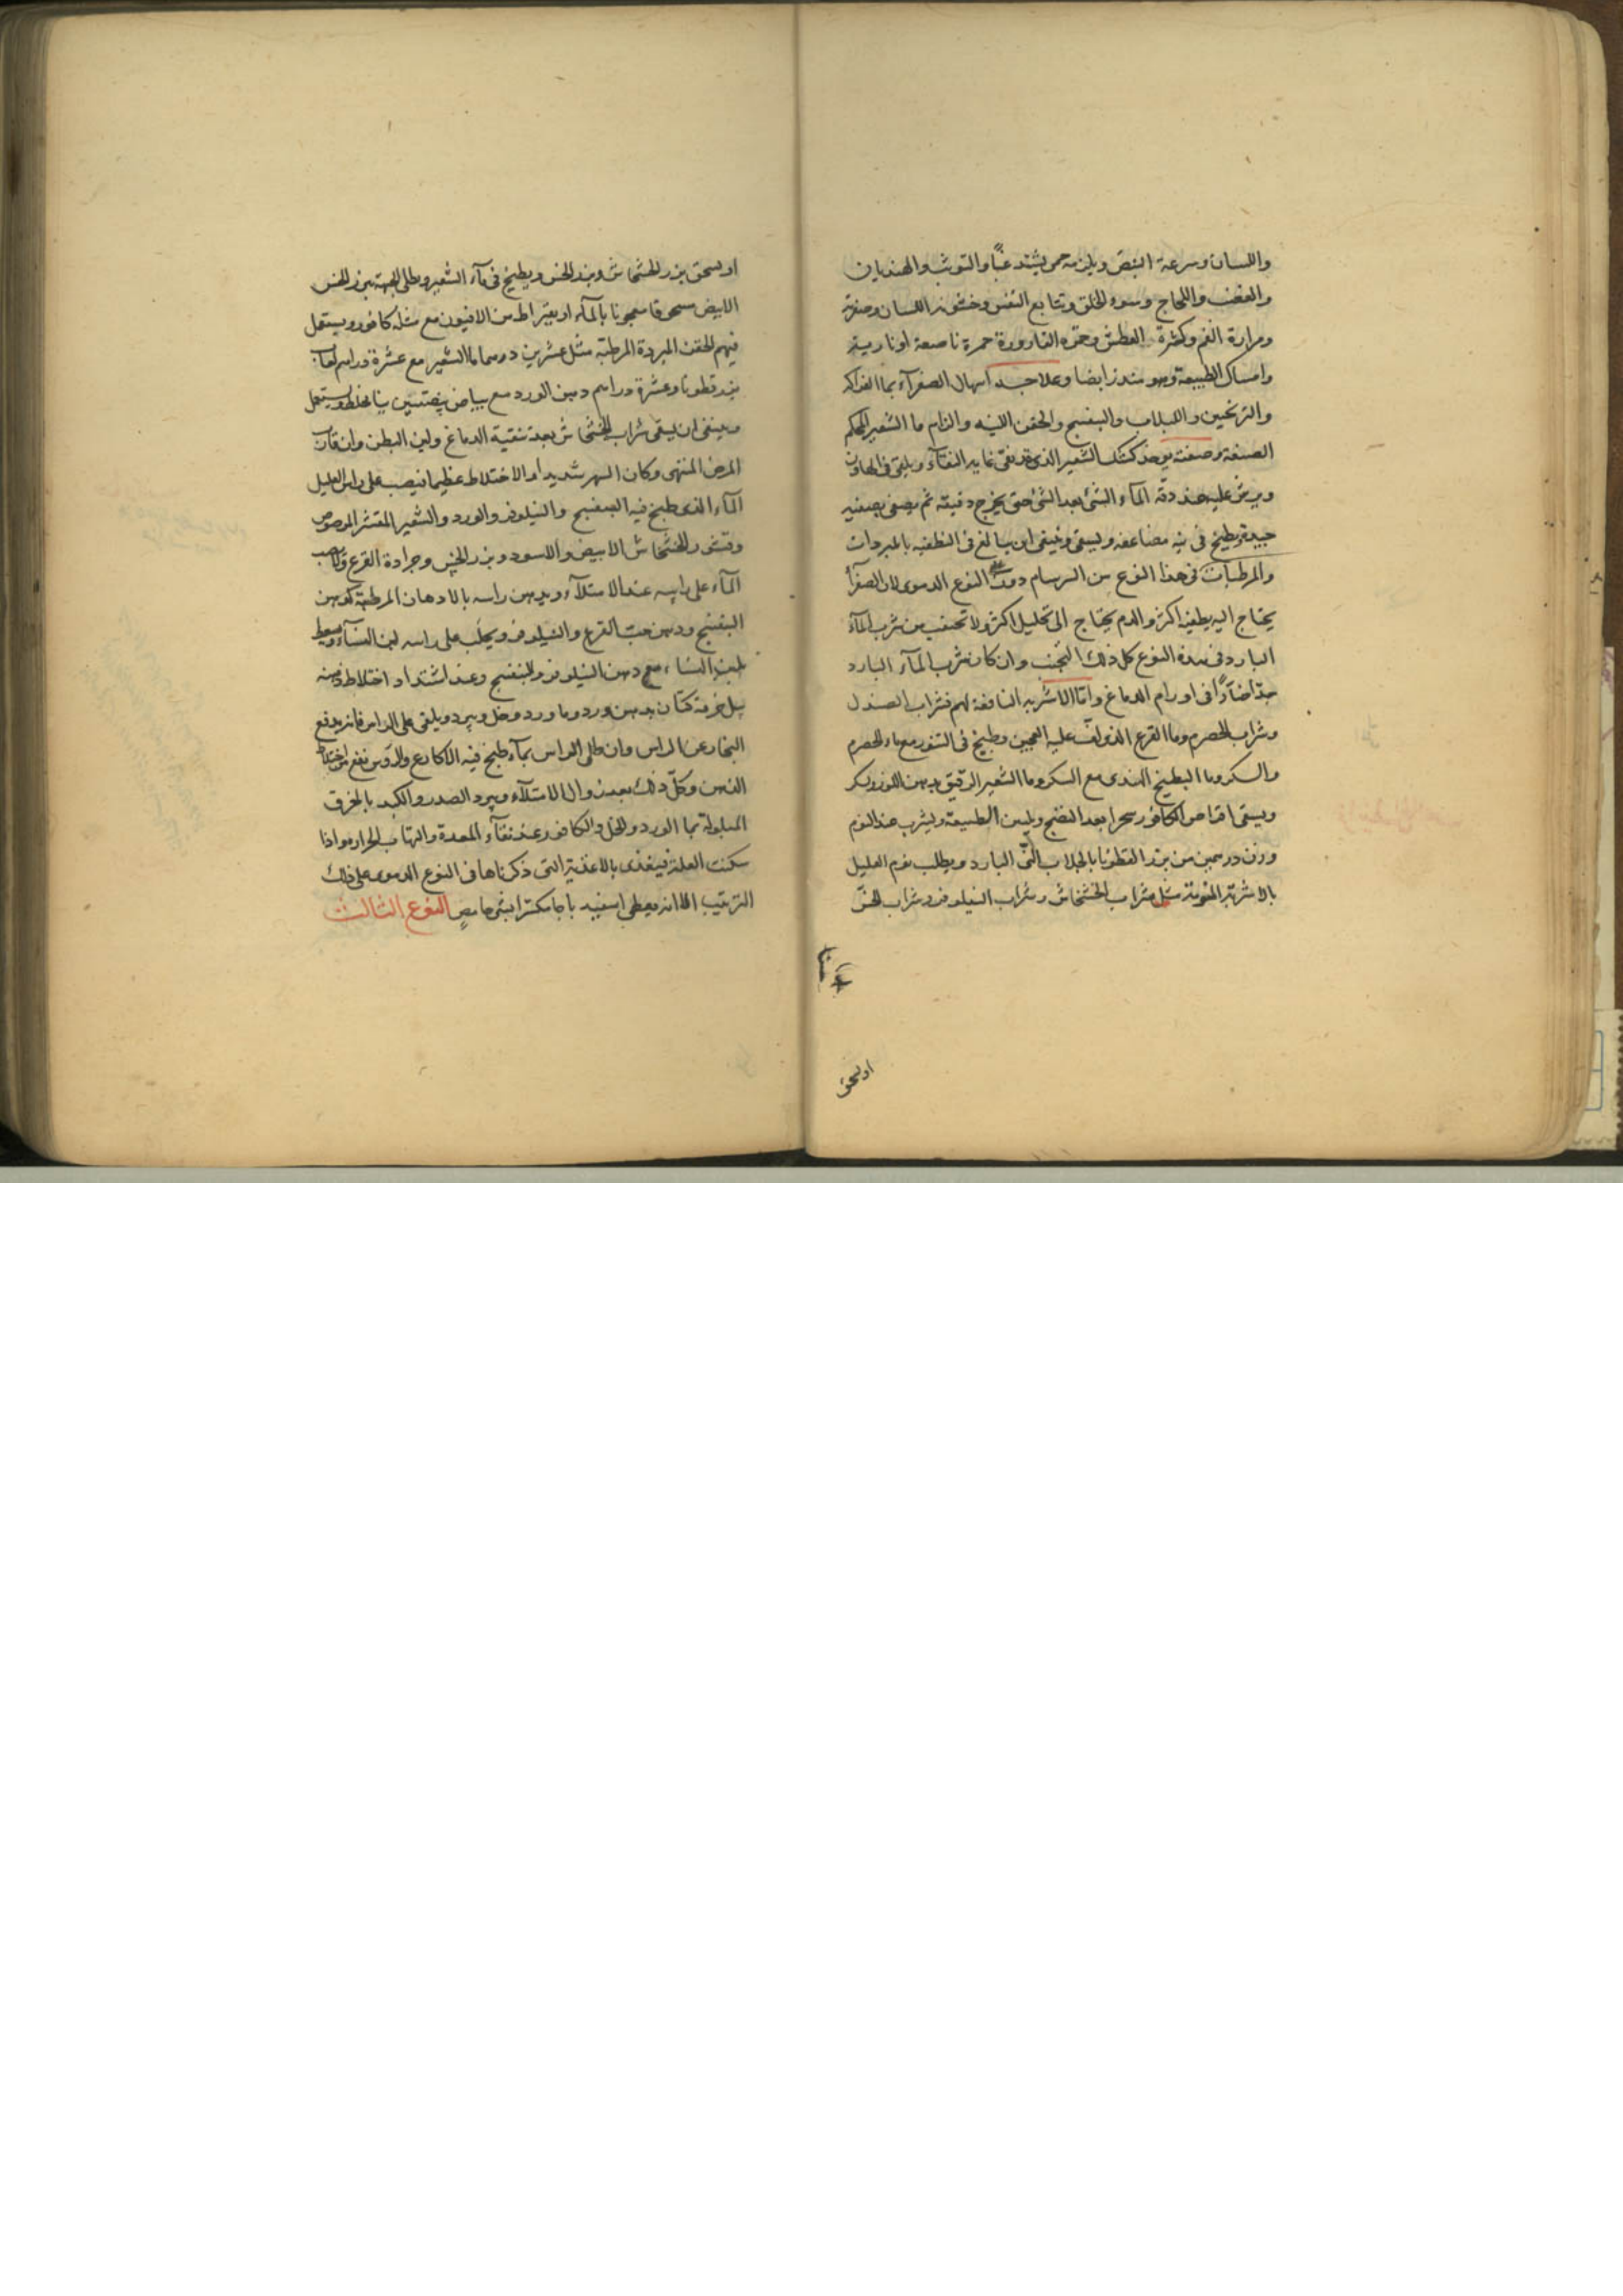 واللسان وسرعة النبض ويلزمه حمى يشتد غبًا والتوثب والهذيان
والغضب واللجاج وسوء الخلق وتتابع النفس وخشونة اللسان وصفرته
ومرارة الفم وكثرة العطش وحمرة القارورة حمرة ناصعة او نارية
وامساك الطبيعة وهو منذر ايضا وعلاجه اسهال الصفرآء بما الفواكه
والترنجبين واللبلاب والبنفسج والحقن اللينه والزام ما الشعير المحكم
الصنعة وصنعته يوخذ كشك الشعير الذى قد نقى غاية النقآء ويلقى فى الهاون
ويرش عليه عند دقه المآء الشئ بعد الشئ حتى يخرج دقيقه ثم يصفى بصفيه
جيدة ويطبخ فى مضاعفه ويسقى وينبغى ان يبالغ فى التطفيه بالمبردات
والمرطبات فى هذا النوع من السرسام دون النوع الدموى لان الصفرآ
يحتاج اليه تطفيه اكثر والدم يحتاج الى تحليل اكثر ولا تجنب من شرب المآء
البارد فى هذه النوع كل ذلك التجنب وان كان شرب المآء البارد
جدّا ضآرًا فى اورام الدماغ وامّا الاشربه النافعة لهم فشراب الصندل
وشراب الحصرم وما القرع الذى لفّ عليه العجين وطبخ فى التنور مع ماء الحصرم
والسكر وما البطيخ الهندى مع السكر وما الشعير الرقيق بدهن اللوز وسكر
ويسقى اقراص الكافور سحرا بعد النضج ولين الطبيعة ويشرب عند النوم
وزن درهمين من بزر القطونا بالجلاب النّى البارد ويطلب نوم العليل
بالاشربة المنومة مثل شراب الخشخاش وشراب النيلوفر وشراب الخسّ
او يسحق
او يسحق بزر الخشخاش وبزر الخس ويطبخ فى مآء الشعير ويطلى الجبهة ببزر الخس
الابيض مسحوقا معجونا بالمآء او بقيراط من الافيون مع مثله كافور ويستعمل
فيهم الحقن المبردة المرطبة مثل عشرين درهما ما الشعير مع عشرة دراهم لعاب
بزر قطونا وعشرة دراهم دهن الورد مع بياض بيضتين يخلط ويستعمل
وينبغى ان يسقى شراب الخشخاش بعد تنقية الدماغ ولين البطن وان قارب
المرض المنتهى وكان السهر شديدا والاختلاط عظيما فيصب على راس العليل
المآء الذى طبخ فيه البنفسج والنيلوفر والورد والشعير المقشر المرضوض
وقشور الخشخاش الابيض والاسود وبزر الخس وجرادة القرع
المآء على راسه عند الامتلآء ويدهن راسه بالادهان المرطبة كدهن
البنفسج ودهن حبّ القرع والنيلوفر ويحلب على راسه لبن النسآء ويسعط
بلبن النساء مع دهن النيلوفر والبنفسج وعند اشتداد اختلاط ذهنه
يبل خرقة كتّان بدهن ورد وما ورد وخل ويبرد ويلقى على الراس فانه يدفع
البخار عن الراس وان طلى الراس بمآء طبخ فيه الاكارع والروس نفع من اختلاط
الذهن وكلّ ذلك بعد زوال الامتلآء ويبرد الصدر والكبد بالخرق
المبلولة بما الورد والخل والكافور عند نقآء المعدة والتهاب الحرارة واذا
سكنت العلة فيغذى بالاغذية التى ذكرناها فى النوع الدموى على ذلك
الترتيب الا انه يعطى اسفيدباجا مكسرا بشئ حامض النوع الثالث